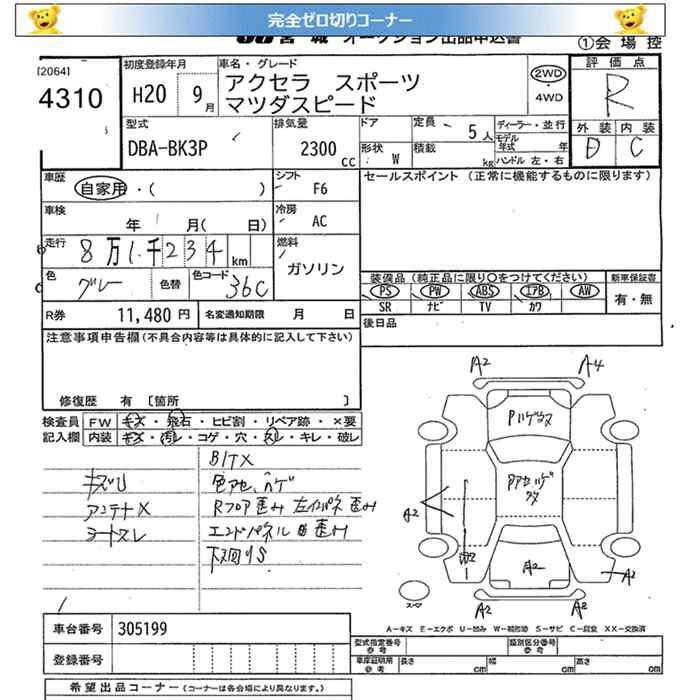 完全ゼロ切りコーナー
JU宮城 オークション出品申込書
①会場控
[2064]
4310
初度登録年月
H20 9月
車名・グレード
アクセラ スポーツ
マツダスピード
2WD
・
4WD
評価点
R
外装 内装
D C
型式
DBA-BK3P
排気量
2300 cc
ドア
形状 W
定員 5人
積載 kg
ディーラー・並行
モデル年式 年
ハンドル 左・右
車歴
自家用・( )
シフト F6
セールスポイント (正常に機能するものに限ります)
車検 年 月( 日)
冷房 AC
走行 8万1千234km
燃料 ガソリン
色 グレー
色替
色コード 36C
装備品(純正品に限り○をつけてください)
新車保証書
PS PW ABS エアB AW
有・無
SR ナビ TV カワ
R券 11,480円
名変通知期限 月 日
後日品
注意事項申告欄(不具合内容等は具体的に記入して下さい)
修復歴 有 [箇所 ]
検査員
記入欄
FW キズ・飛石・ヒビ割・リペア跡・×要
内装 キズ・汚れ・コゲ・穴・スレ・キレ・破レ
キズU
アンテナX
シートスレ
色アセ、ハゲ
Rフロア歪み 左インパネ歪み
エンドパネル曲歪み
下廻りS
A2 A4
A2
A2
A2
A2 A2
スペア
A-キズ E-エクボ U-凹み W-補修跡 S-サビ C-腐食 XX-交換済
車台番号 305199
登録番号
型式指定番号
参考
類別区分番号
参考
車庫証明用
参考
長さ cm 幅 cm 高さ cm
希望出品コーナー(コーナーは各会場により異なります。)